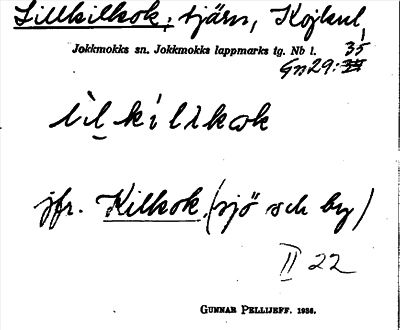 Lillkilkok, tjärn, Kojkul,
Jokkmokks sn. Jokkmokks lappmarks tg. Nb l. 35
Gn 29:
lìlkílkok
jfr. Kilkok (sjö och by)
II 22
GUNNAR PELLIJEFF. 1936.